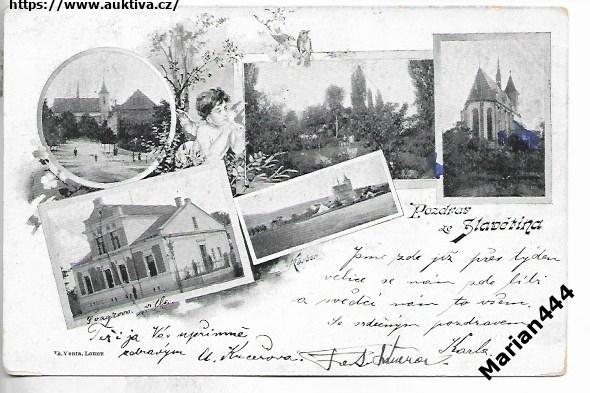 https://www.auktiva.cz/
Pozdrav
ze Slavětína
Jsme zde již přes týden
velice se nám zde líbí
a svědčí nám to všem.
Se srdečným pozdravem
Karla
Též já Vás upřímně
zdravím M. Kučerova.
Th. Venta, Louny
Marian444